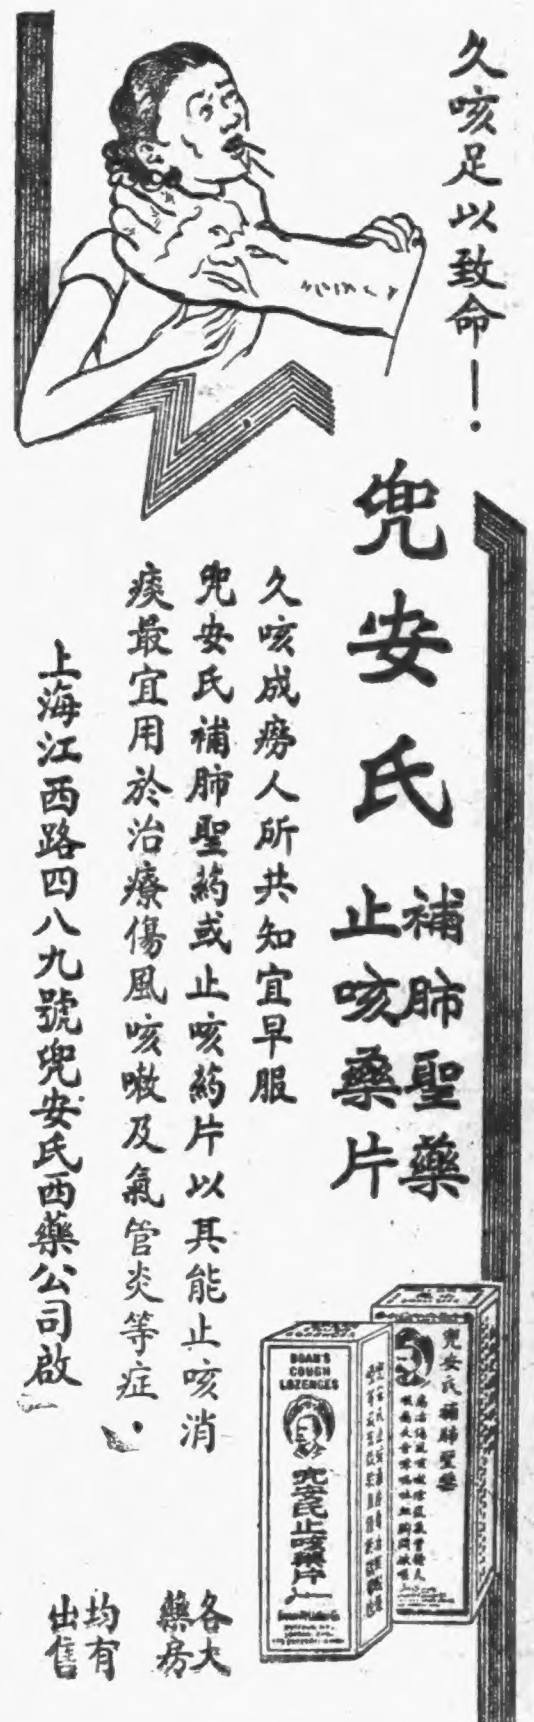 久咳足以致命！
兜安氏
補肺聖藥
止咳藥片
久咳成癆人所共知宜早服
兜安氏補肺聖药或止咳药片以其能止咳消
痰最宜用於治療傷風咳嗽及氣管炎等症
上海江西路四八九號兜安氏西藥公司啟
兜安氏補肺聖藥
DOAN'S
COUGH
LOZENGES
兜安氏止咳藥片
各大
藥房
均有
出售